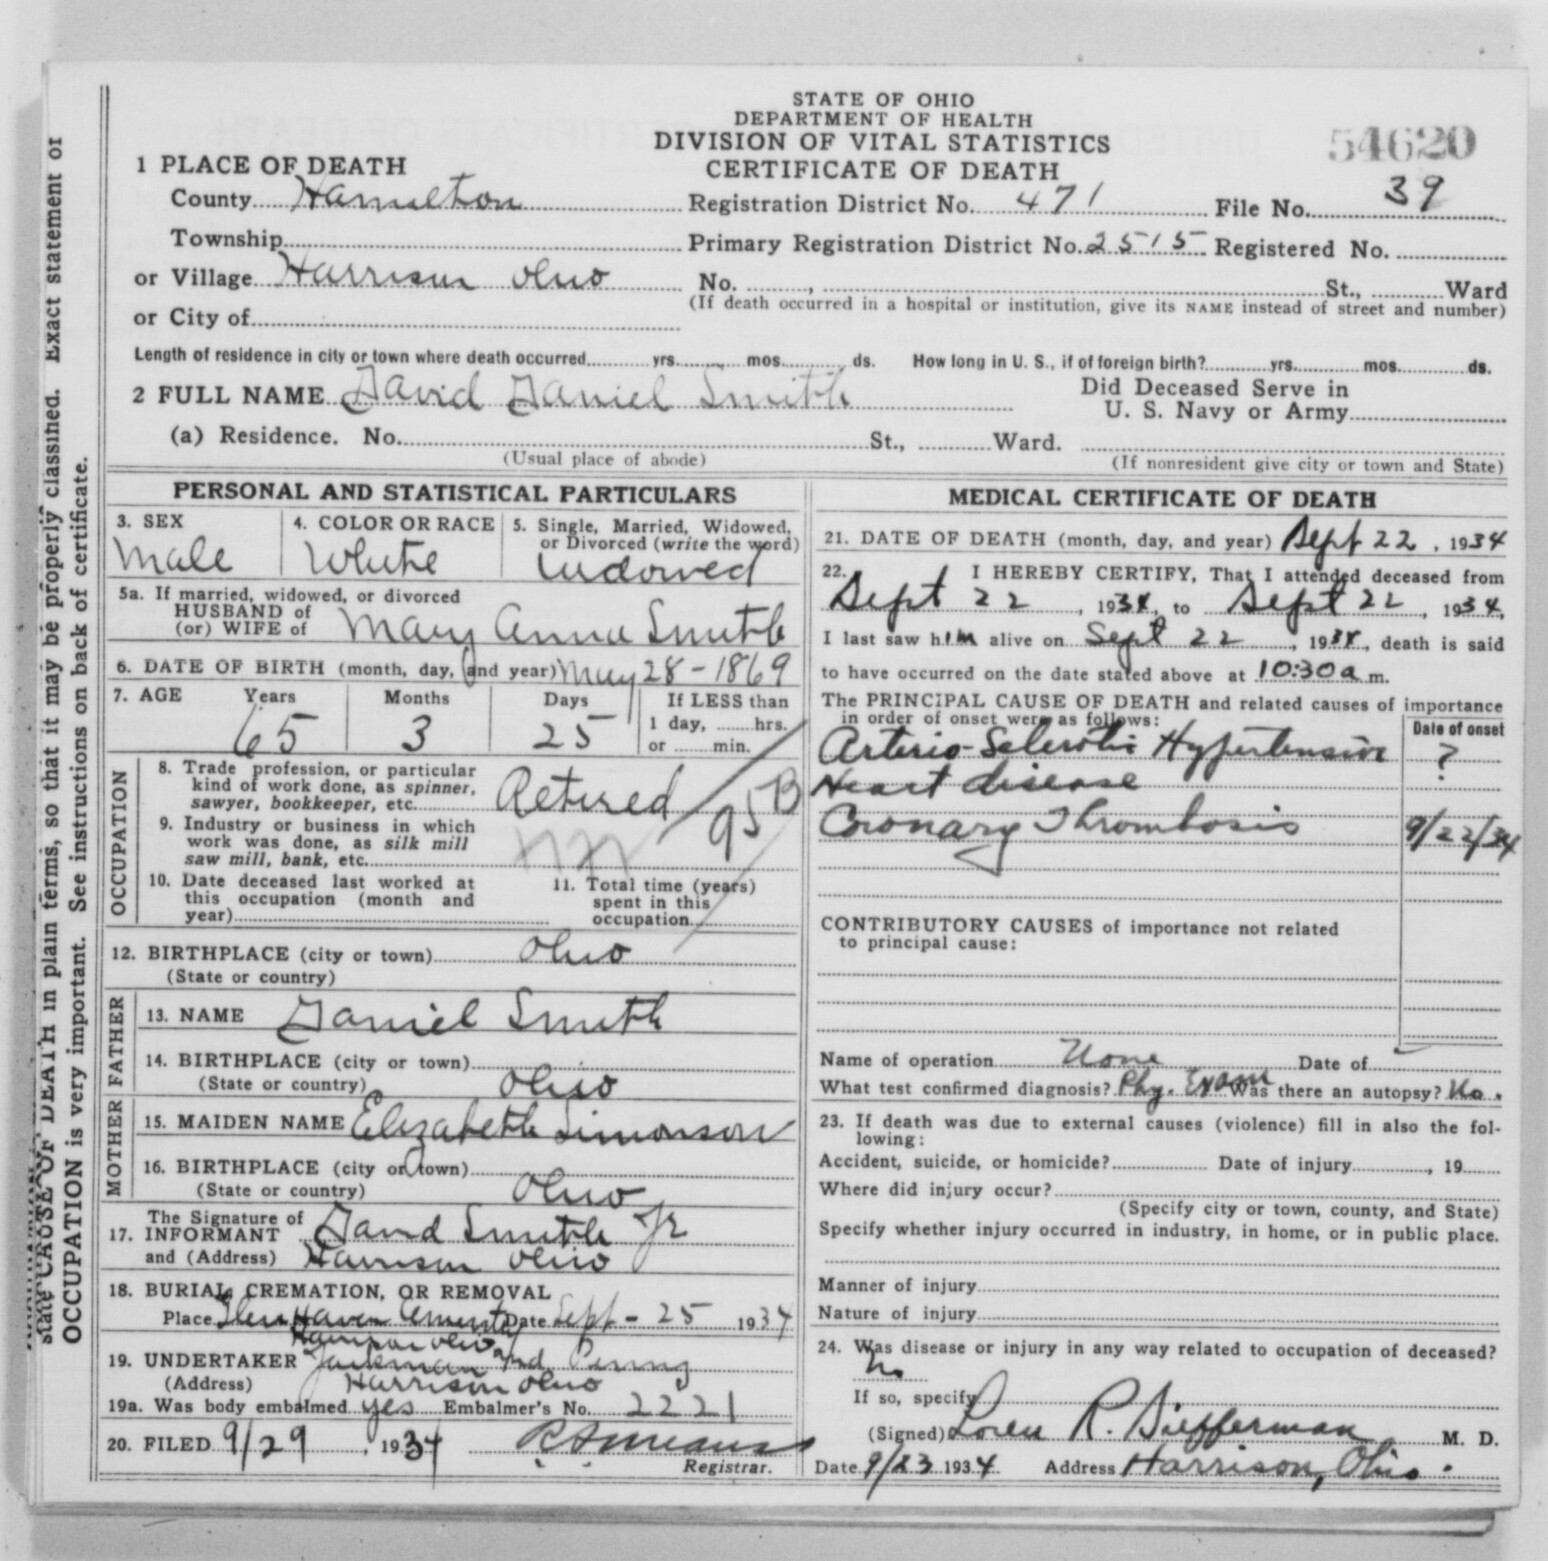 STATE OF OHIO
DEPARTMENT OF HEALTH
DIVISION OF VITAL STATISTICS
CERTIFICATE OF DEATH
54620
1 PLACE OF DEATH
County Hamilton Registration District No. 471 File No. 39
Township Primary Registration District No. 2515 Registered No.
or Village Harrison Ohio No. , St., Ward
(If death occurred in a hospital or institution, give its NAME instead of street and number)
or City of
Length of residence in city or town where death occurred yrs. mos. ds. How long in U. S., if of foreign birth? yrs. mos. ds.
2 FULL NAME David Daniel Smith Did Deceased Serve in
U. S. Navy or Army
(a) Residence. No. St., Ward.
(Usual place of abode) (If nonresident give city or town and State)
PERSONAL AND STATISTICAL PARTICULARS
3. SEX 4. COLOR OR RACE 5. Single, Married, Widowed,
or Divorced (write the word)
Male White Widowed
5a. If married, widowed, or divorced
HUSBAND of
(or) WIFE of Mary Anna Smith
6. DATE OF BIRTH (month, day, and year) May 28-1869
7. AGE Years Months Days If LESS than
1 day, hrs.
or min.
65 3 25
OCCUPATION
8. Trade profession, or particular
kind of work done, as spinner,
sawyer, bookkeeper, etc. Retired
95 B
9. Industry or business in which
work was done, as silk mill
saw mill, bank, etc.
10. Date deceased last worked at
this occupation (month and
year)
11. Total time (years)
spent in this
occupation
12. BIRTHPLACE (city or town) Ohio
(State or country)
FATHER
13. NAME Daniel Smith
14. BIRTHPLACE (city or town)
(State or country) Ohio
MOTHER
15. MAIDEN NAME Elizabeth Simonson
16. BIRTHPLACE (city or town)
(State or country) Ohio
The Signature of
17. INFORMANT David Smith Jr
and (Address) Harrison Ohio
18. BURIAL, CREMATION, OR REMOVAL
Place Glen Haven Cemetery Date Sept-25 1934
Harrison Ohio
19. UNDERTAKER Jackman and Penny
(Address) Harrison Ohio
19a. Was body embalmed yes Embalmer's No. 2221
20. FILED 9/29, 1934
Registrar.
MEDICAL CERTIFICATE OF DEATH
21. DATE OF DEATH (month, day, and year) Sept 22, 1934
22. I HEREBY CERTIFY, That I attended deceased from
Sept 22, 1934, to Sept 22, 1934,
I last saw him alive on Sept 22, 1934, death is said
to have occurred on the date stated above at 10:30 a m.
The PRINCIPAL CAUSE OF DEATH and related causes of importance
in order of onset were as follows: Date of onset
Arterio-Sclerotic Hypertensive ?
Heart disease
Coronary Thrombosis 9/22/34
CONTRIBUTORY CAUSES of importance not related
to principal cause:
Name of operation None Date of
What test confirmed diagnosis? Phy. Exam Was there an autopsy? No.
23. If death was due to external causes (violence) fill in also the fol-
lowing:
Accident, suicide, or homicide? Date of injury , 19
Where did injury occur?
(Specify city or town, county, and State)
Specify whether injury occurred in industry, in home, or in public place.
Manner of injury
Nature of injury
24. Was disease or injury in any way related to occupation of deceased?
No
If so, specify
(Signed) Loren R. Biefferman M. D.
Date 9/23 1934 Address Harrison, Ohio.
state CAUSE OF DEATH in plain terms, so that it may be properly classified. Exact statement of
OCCUPATION is very important. See instructions on back of certificate.